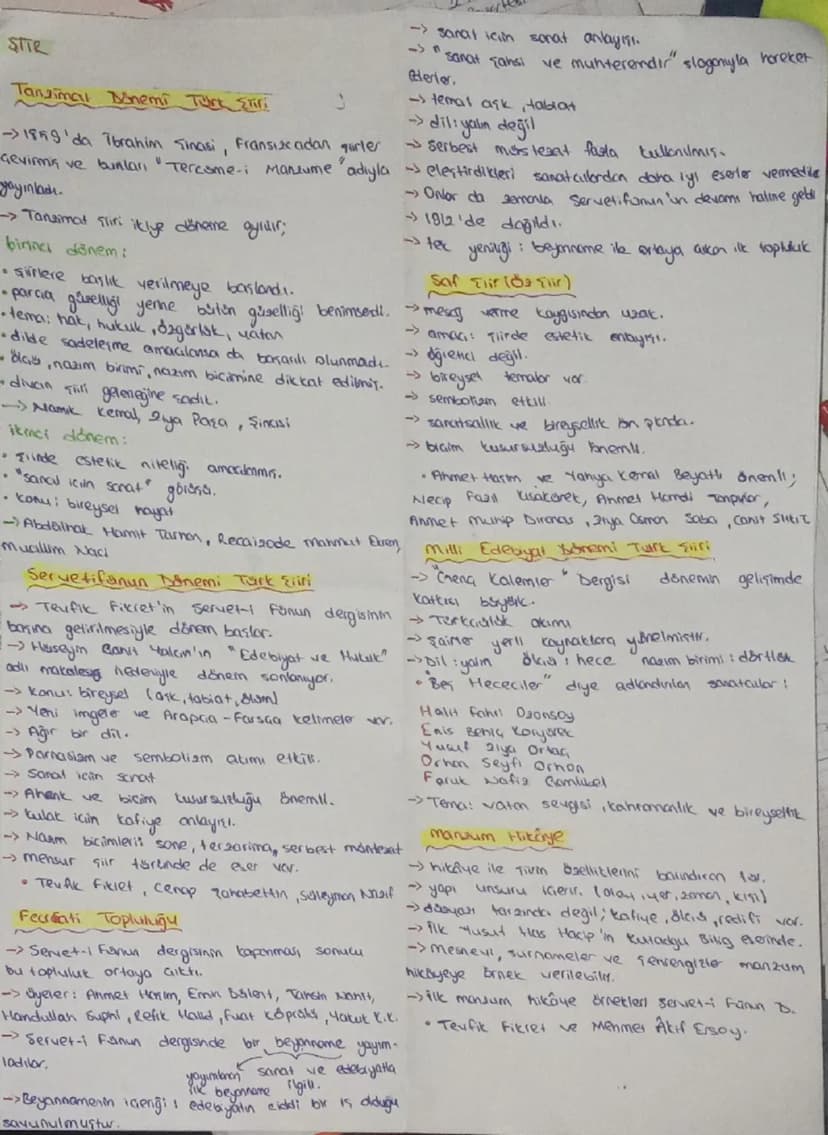 ŞİİR
Tanzimat Dönemi Türk Şiiri
→ 1859'da İbrahim Şinasi, Fransızcadan şiirler
çevirmiş ve bunları "Tercüme-i Manzume" adıyla
yayınladı.
→ Tanzimat şiiri ikiye döneme ayrılır;
birinci dönem:
• şiirlere başlık verilmeye başlandı.
• parça güzelliği yerine bütün güzelliği benimsendi.
• tema: hak, hukuk, özgürlük, vatan
• dilde sadeleşme amaçlansa da başarılı olunmadı.
• ölçü, nazım birimi, nazım biçimine dikkat edilmiş.
• divan şiiri geleneğine sadık.
→ Namık Kemal, Ziya Paşa, Şinasi
ikinci dönem:
• şiirde estetik niteliği amaçlanmış.
• "sanat için sanat" görüşü.
• konu: bireysel hayat
→ Abdülhak Hamit Tarhan, Recaizade Mahmut Ekrem,
Muallim Naci
Servetifünun Dönemi Türk Şiiri
→ Tevfik Fikret'in Servet-i Fünun dergisinin
başına getirilmesiyle dönem başlar.
→ Hüseyin Cahit Yalçın'ın "Edebiyat ve Hukuk"
adlı makalesi nedeniyle dönem sonlanıyor.
→ Konu: bireysel (aşk, tabiat, ölüm)
→ Yeni imgeler ve Arapça-Farsça kelimeler var.
→ Ağır bir dil.
→ Parnasizm ve sembolizm akımı etkili.
→ Sanat için sanat
→ Ahenk ve biçim kusursuzluğu önemli.
→ kulak için kafiye anlayışı.
→ Nazım biçimleri: sone, terzarima, serbest müstezat
→ mensur şiir türünde de eser var.
• Tevfik Fikret, Cenap Şahabettin, Süleyman Nazif
Fecriati Topluluğu
→ Servet-i Fünun dergisinin kapanması sonucu
bu topluluk ortaya çıktı.
→ Üyeler: Ahmet Haşim, Emin Bülent, Tahsin Nahit,
Hamdullah Suphi, Refik Halid, Fuat Köprülü, Yakup K.K.
→ Servet-i Fünun dergisinde bir beyanname yayım-
ladılar.
yayımlanan ilk beyanname
sanat ve edebiyatla ilgili.
→ Beyannamenin içeriği: edebiyatın ciddi bir iş olduğu
savunulmuştur.
→ sanat için sanat anlayışı.
→ "sanat şahsi ve muhteremdir" sloganıyla hareket
ederler.
→ tema: aşk, tabiat
→ dil: yalın değil
→ Serbest müstezat fazla kullanılmış.
→ eleştirdikleri sanatçılardan daha iyi eserler vermediler
→ Onlar da zamanla Servetifünun'un devamı haline geldi
→ 1912'de dağıldı.
→ tek yeniliği: beyanname ile ortaya çıkan ilk topluluk
Saf Şiir (Öz Şiir)
→ mesaj verme kaygısından uzak.
→ amacı: şiirde estetik anlayışı.
→ öğretici değil.
→ bireysel temalar var
→ sembolizm etkili
→ sanatsallık ve bireysellik ön planda.
→ biçim kusursuzluğu önemli.
• Ahmet Haşim ve Yahya Kemal Beyatlı önemli;
Necip Fazıl Kısakürek, Ahmet Hamdi Tanpınar,
Ahmet Muhip Dıranas, Ziya Osman Saba, Cahit Sıtkı T.
Milli Edebiyat Dönemi Türk Şiiri
→ "Genç Kalemler" Dergisi dönemin gelişimde
katkısı büyük.
→ Türkçülük akımı
→ şairler yerli kaynaklara yönelmiştir.
→ Dil: yalın ölçü: hece nazım birimi: dörtlük
• "Beş Hececiler" diye adlandırılan sanatçılar:
Halit Fahri Ozansoy
Enis Behiç Koryürek
Yusuf Ziya Ortaç
Orhan Seyfi Orhon
Faruk Nafiz Çamlıbel
→ Tema: vatan sevgisi, kahramanlık ve bireysellik
Manzum Hikaye
→ hikaye ile şiirin özelliklerini barındıran tür.
→ yapı unsuru içerir. (olay, yer, zaman, kişi)
→ düzyazı tarzında değil; kafiye, ölçü, redifi var.
→ ilk Yusuf Has Hacip'in Kutadgu Bilig eserinde.
→ mesnevi, surnameler ve şehrengizler manzum
hikayeye örnek verilebilir.
→ ilk manzum hikaye örnekleri Servet-i Fünun D.
• Tevfik Fikret ve Mehmet Âkif Ersoy.